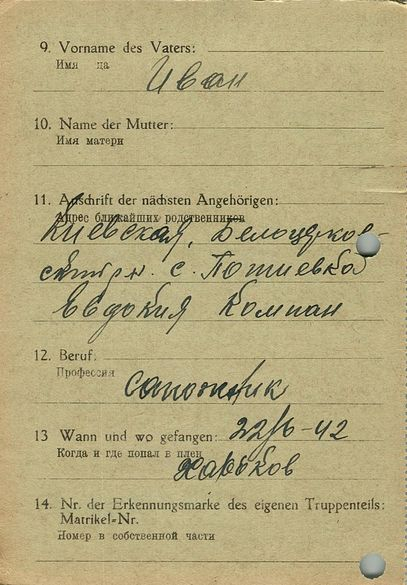 9. Vorname des Vaters:
Имя оца
Иван
10. Name der Mutter:
Имя матери
11. Anschrift der nächsten Angehörigen:
Адрес ближайших родственников
Киевская, Белоцерков-
с. Потиевка
Евдокия Компан
12. Beruf.
Профессия
сапожник
13 Wann und wo gefangen: 22/6-42
Когда и где попал в плен
Харьков
14. Nr. der Erkennungsmarke des eigenen Truppenteils:
Matrikel-Nr.
Номер в собственной части